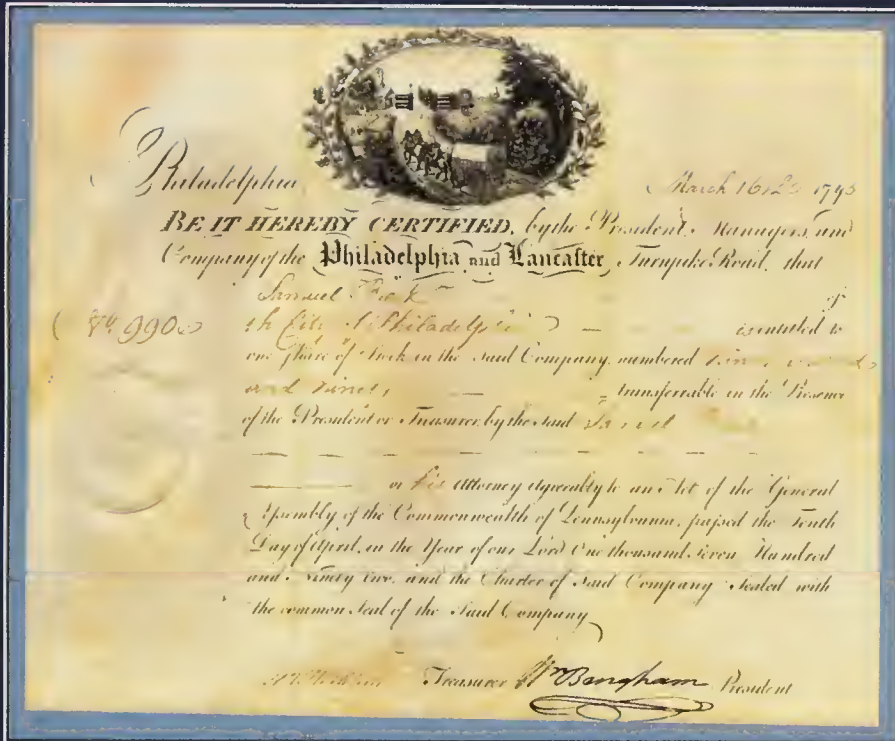 Philadelphia March 16th 1795
BE IT HEREBY CERTIFIED, by the President, Managers, and
Company of the Philadelphia and Lancaster Turnpike Road, that
Samuel of
No. 990 the City of Philadelphia is entitled to
one Share of Stock in the said Company, numbered nine hundred
and ninety transferrable in the Presence
of the President or Treasurer, by the said Samuel
or his Attorney agreeably to an Act of the General
Assembly of the Commonwealth of Pennsylvania, passed the Tenth
Day of April, in the Year of our Lord One thousand, seven Hundred
and Ninety two, and the Charter of said Company Sealed with
the common Seal of the said Company
Treasurer Wm Bingham President